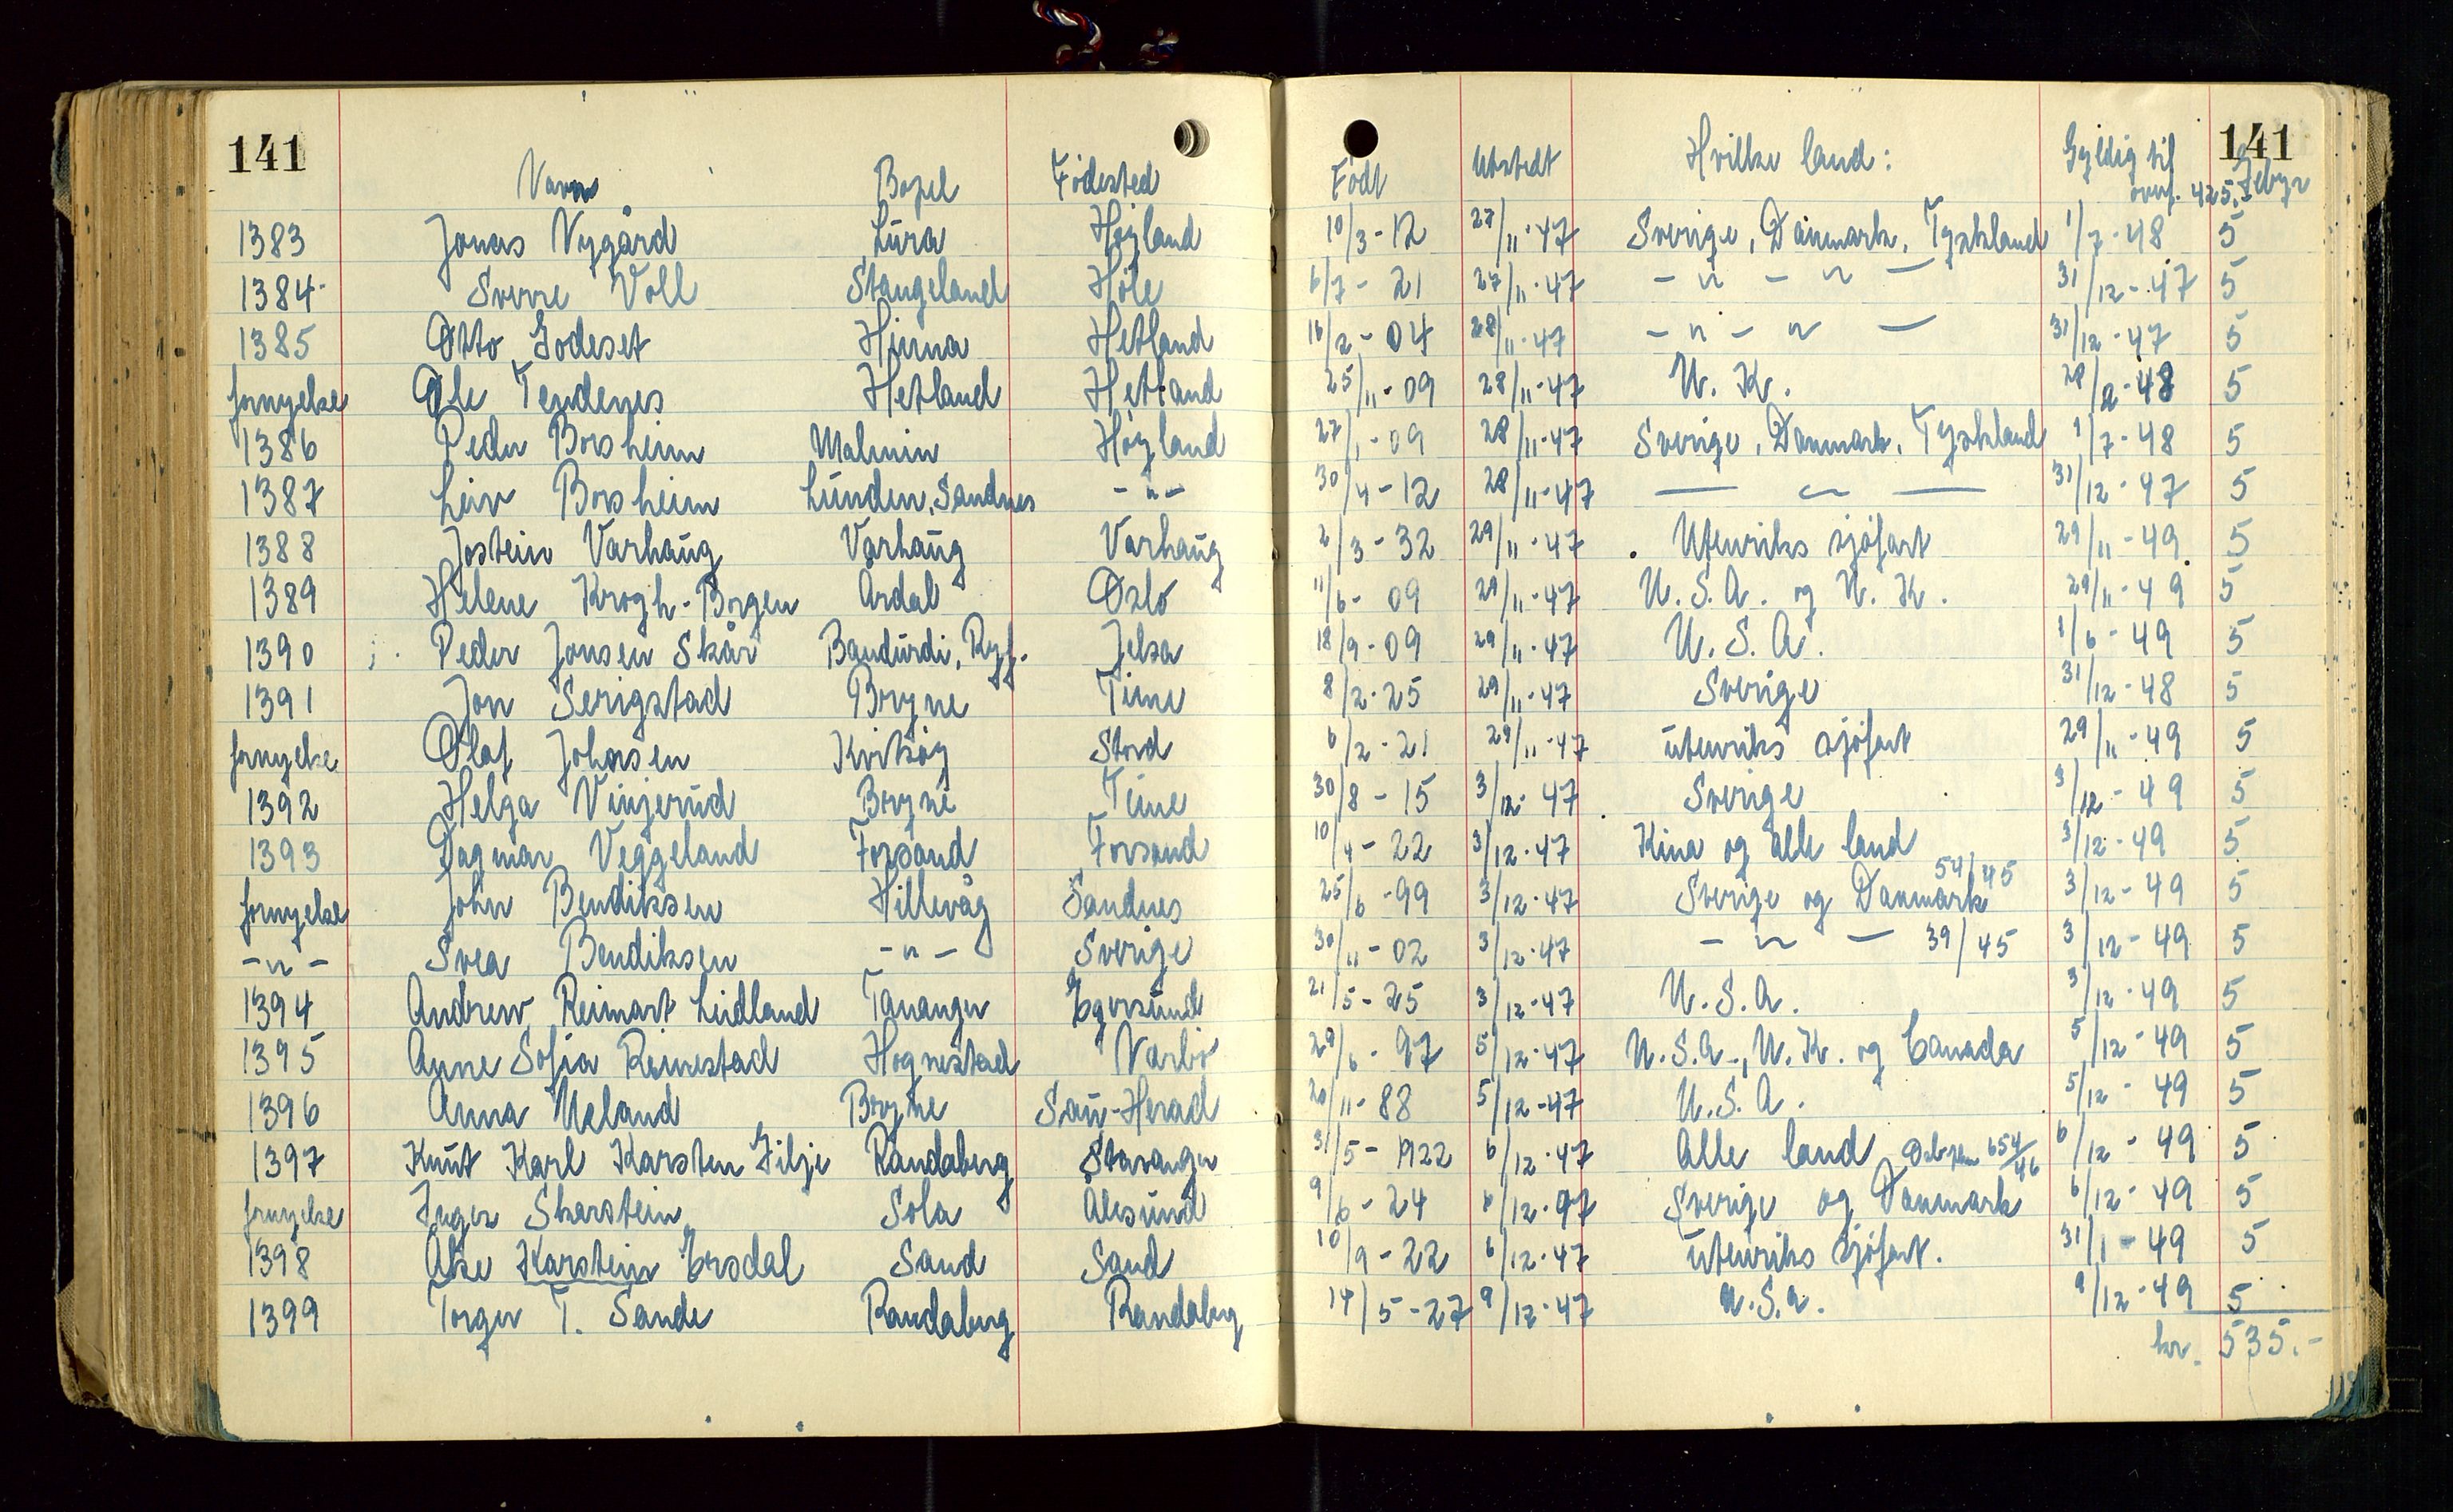 141 141
Navn Bopel Fødested Født Utstedt Hvilke land: Gyldig til Gebyr
overf. 425.-
1383 Jonas Nygård Lura Høyland 10/3-12 27/11-47 Sverige, Danmark, Tyskland 1/7-48 5
1384 Sverre Voll Stangeland Høle 6/7-21 27/11-47 - " - " - 31/12-47 5
1385 Otto Godeset Hinna Hetland 16/2-04 28/11-47 - " - " - 31/12-47 5
fornyelse Ole Tendenes Hetland Hetland 25/11-09 28/11-47 U. K. 28/2-48 5
1386 Peder Borsheim Malmin Høyland 27/1-09 28/11-47 Sverige, Danmark, Tyskland 1/7-48 5
1387 Leiv Borsheim Lunden, Sandnes -"- 30/4-12 28/11-47 - " - 31/12-47 5
1388 Jostein Varhaug Varhaug Varhaug 2/3-32 29/11-47 Utenriks sjöfart 29/11-49 5
1389 Helene Krogh-Borgen Årdal Oslo 11/6-09 29/11-47 U.S.A. og U.K. 29/11-49 5
1390 Peder Jonsen Skår Bandurdi, Ryf. Jelsa 18/9-09 29/11-47 U.S.A. 1/6-49 5
1391 Jon Serigstad Bryne Time 8/2-25 29/11-47 Sverige 31/12-48 5
fornyelse Olaf Johnsen Kvitsøy Stord 6/2-21 29/11-47 utenriks sjöfart 29/11-49 5
1392 Helga Vinjerud Bryne Time 30/8-15 3/12-47 Sverige 3/12-49 5
1393 Dagmar Veggeland Forsand Forsand 10/4-22 3/12-47 Kina og alle land 3/12-49 5
fornyelse John Bendiksen Hillevåg Sandnes 25/6-99 3/12-47 Sverige og Danmark 54/45 3/12-49 5
-"- Svea Bendiksen -"- Sverige 30/11-02 3/12-47 - " - 39/45 3/12-49 5
1394 Andrew Reimart Lidland Tananger Egersund 21/5-25 3/12-47 U.S.A. 3/12-49 5
1395 Anne Sofia Reinestad Hognestad Narbö 29/6-97 5/12-47 U.S.A., U.K. og Canada 5/12-49 5
1396 Anna Ueland Bryne Sau-Herad 20/11-88 5/12-47 U.S.A. 5/12-49 5
1397 Knut Karl Karsten Gilje Randaberg Stavanger 31/5-1922 6/12-47 Alle land 654/46 6/12-49 5
fornyelse Inger Skarstein Sola Ålesund 9/6-24 6/12-47 Sverige og Danmark 6/12-49 5
1398 Åke Karstein Ersdal Sand Sand 10/9-22 6/12-47 utenriks sjöfart. 31/1-49 5
1399 Torger T. Sande Randaberg Randaberg 14/5-27 9/12-47 U.S.A. 9/12-49 5
kr. 535.-